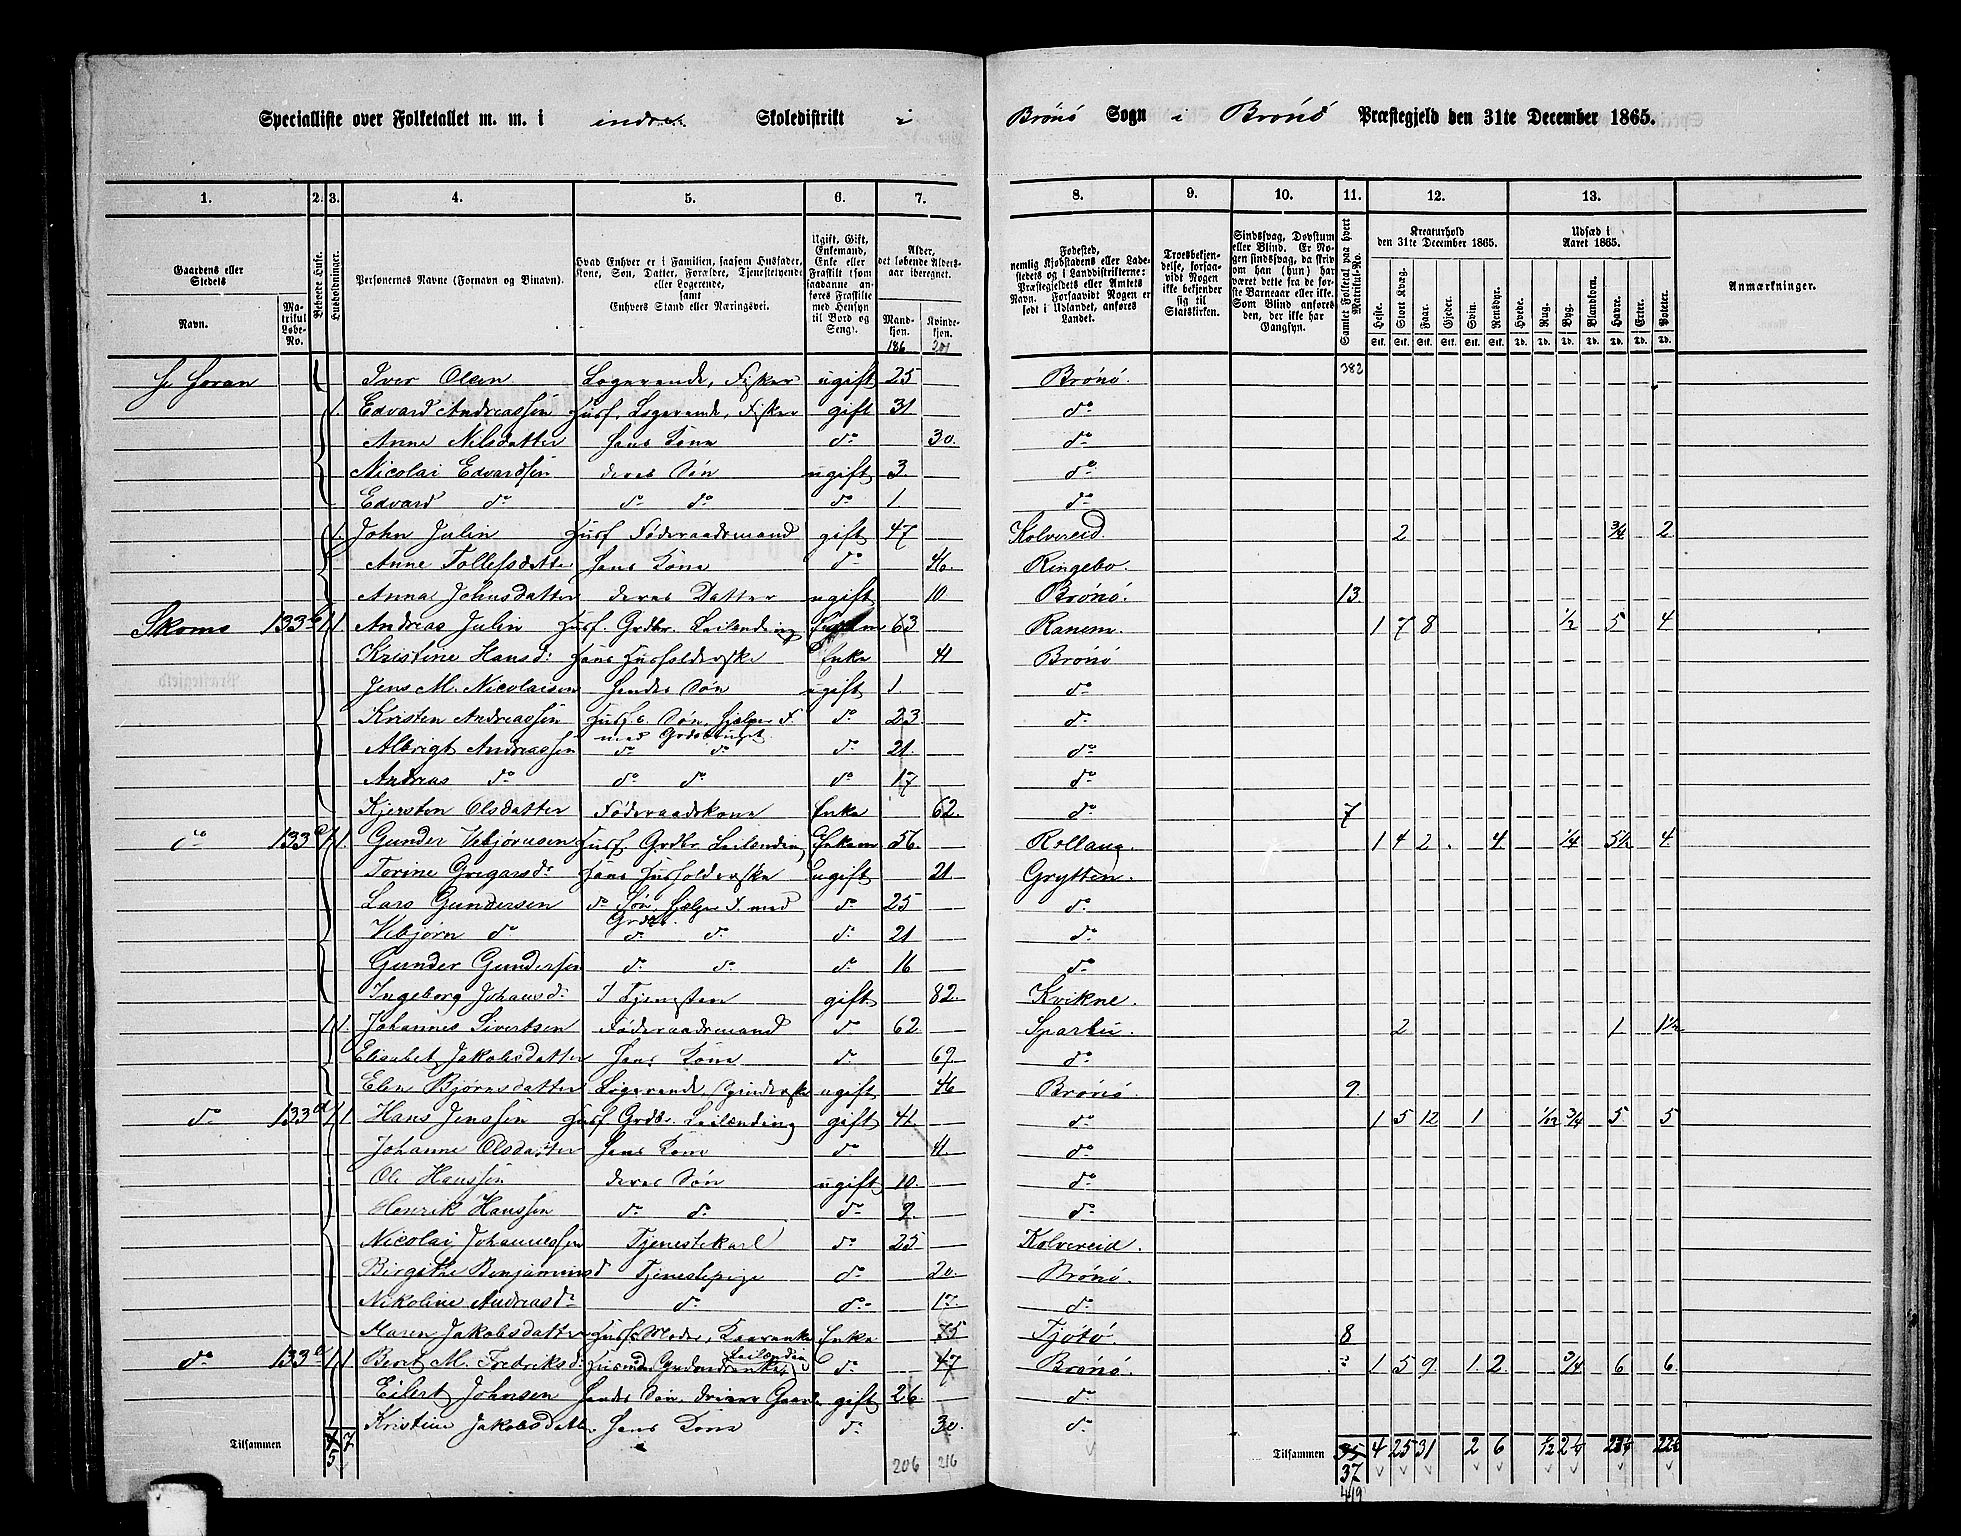 Specialliste over Folketallet m. m. i indre Skoledistrikt i Brönö Sogn i Brönö Præstegjeld den 31te December 1865.
1. 2. 3. 4. 5. 6. 7. 8. 9. 10. 11. 12. 13.
Gaardens eller Stedets
Navn. Matrikul Løbe-No.
Beboede Huse.
Husholdninger.
Personernes Navne (Fornavn og Binavn).
Hvad Enhver er i Familien, saasom Husfader, Kone, Søn, Datter, Forældre, Tjenestetyende eller Logerende, samt Enhvers Stand eller Næringsvei.
Ugift, Gift, Enkemand, Enke eller Fraskilt (som saadanne anføres Fraskilte med Hensyn til Bord og Seng).
Alder, det løbende Alders-aar iberegnet.
Mandkjøn. Kvindekjøn.
186 201
Fødested, nemlig Kjøbstadens eller Ladestedets og i Landdistrikterne: Præstegjeldets eller Amtets Navn. Forsaavidt Nogen er født i Udlandet, anføres Landet.
Troesbekjendelse, forsaavidt Nogen ikke bekjender sig til Statskirken.
Sindssvag, Døvstum eller Blind. Er Nogen sindssvag, da skrives om han (hun) har været dette fra de første Barneaar eller ikke. Som Blind anføres den, der ikke har Gangsyn.
Samlet Folketal paa hvert Matrikul-No.
Kreaturhold den 31te December 1865.
Heste. Stort Kvæg. Faar. Gjeder. Svin. Rensdyr.
Udsæd i Aaret 1865.
Hvede. Rug. Byg. Blandkorn. Havre. Erter. Poteter.
Stk. Stk. Stk. Stk. Stk. Stk. Td. Td. Td. Td. Td. Td. Td.
Anmærkninger.
Iver Olsen Logerende, Fisker ugift 25 Brönö. 382
1. Edvard Andreassen Husf. Logerende, Fisker gift 31 do
Anne Nilsdatter hans Kone do 30. do
Nicolai Edvardsen deres Søn ugift 3 do
Edvard do do do do 1. do
1. John Julin Husf Föderaadsmand gift 47 Kolvereid 2 3/4 2
Anne Tollefsdatter hans Kone do 46. Ringebo.
Anna Johnsdatter deres Datter ugift 10 Brönö. 13.
Skoms 133b 1 1. Andreas Julin Husf. Grdbr. Leilænding 63 Ranem. 1 7 8 1/2 5 4
Kristine Hansd: hans Husholderske Enke 41 Brönö
Jens M. Nicolaisen hendes Søn ugift 1 do
Kristen Andreassen Husf. Søn, hjelper F. med Grdsbruget. do 23 do
Albrigt Andreassen do do do 21. do
Andreas do do do do 17 do
Kjersten Olsdatter Föderaadskone Enke 62. do 7
do 133 1 1. Gunder Vebjørnsen Husf. Grdbr. Leilænding Enkem 56 Rollaug. 1 4 2. 4 1/4 5 1/2 4
Torine Gregarsd: hans Husholderske ugift 21 Grytten.
Lars Gundersen do Søn, hjelper F. med Grdbr. do 25 do
Vebjørn do do do do 21 do
Gunder Gundersen do do do 16 do
Ingeborg Johansd: I Tjenesten gift 82. Kvikne.
1 1. Johannes Sivertsen Föderaadsmand do 62 Sparbu. 2 1 1 1/2
Elisabet Jakobsdatter hans Kone do 69. do
Elen Bjørnsdatter Logerende, Spinderske ugift 46 Brönö. 9.
do 133d 1 1 Hans Jenssen Husf Grdbr. Leilænding gift 41. do 1 5 12 1 1/12 3/4 5 5
Johanne Olsdatter hans Kone do 41. do
Ole Hanssen deres Søn ugift 10. do
Henrik Hanssen do do do 9. do
Nicolai Johannessen Tjenestekarl do 25 Kolvereid.
Birgithe Benjaminsd Tjenestepige do 20. Brönö.
Nikoline Andreasd: do do 17. do
Maren Jakobsdatter Husf: Moder, Enke 75 Tjötö. 8
do 133 1 1 Berit M. Fredriksd: Leilænding do 47 Brönö. 1 5 9. 1. 2. 3/4 6 6.
Eilert Johnsen hendes Søn, driver Gaard gift 26. do
Kristine Jakobsdatter hans Kone do 30. do
Tilsammen 5 7 206 216
Tilsammen 35 4 25 31 2 6 1/12
37
419